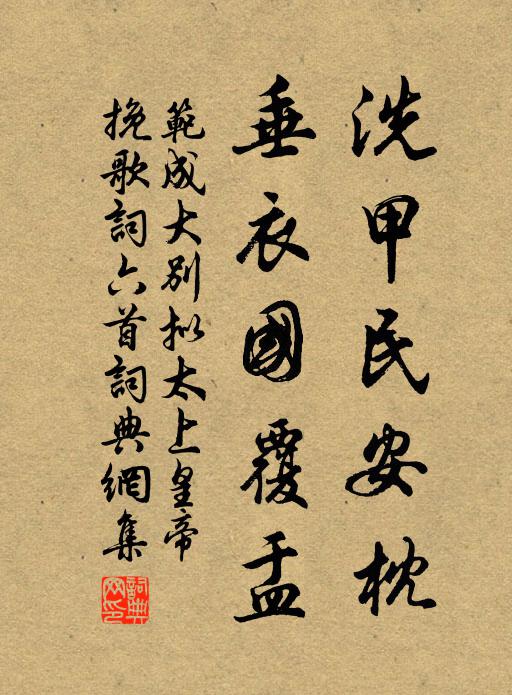 洗甲民安枕
垂衣國覆盂
範成大別擬太上皇帝
挽歌詞六首詞典網集
詞典网印